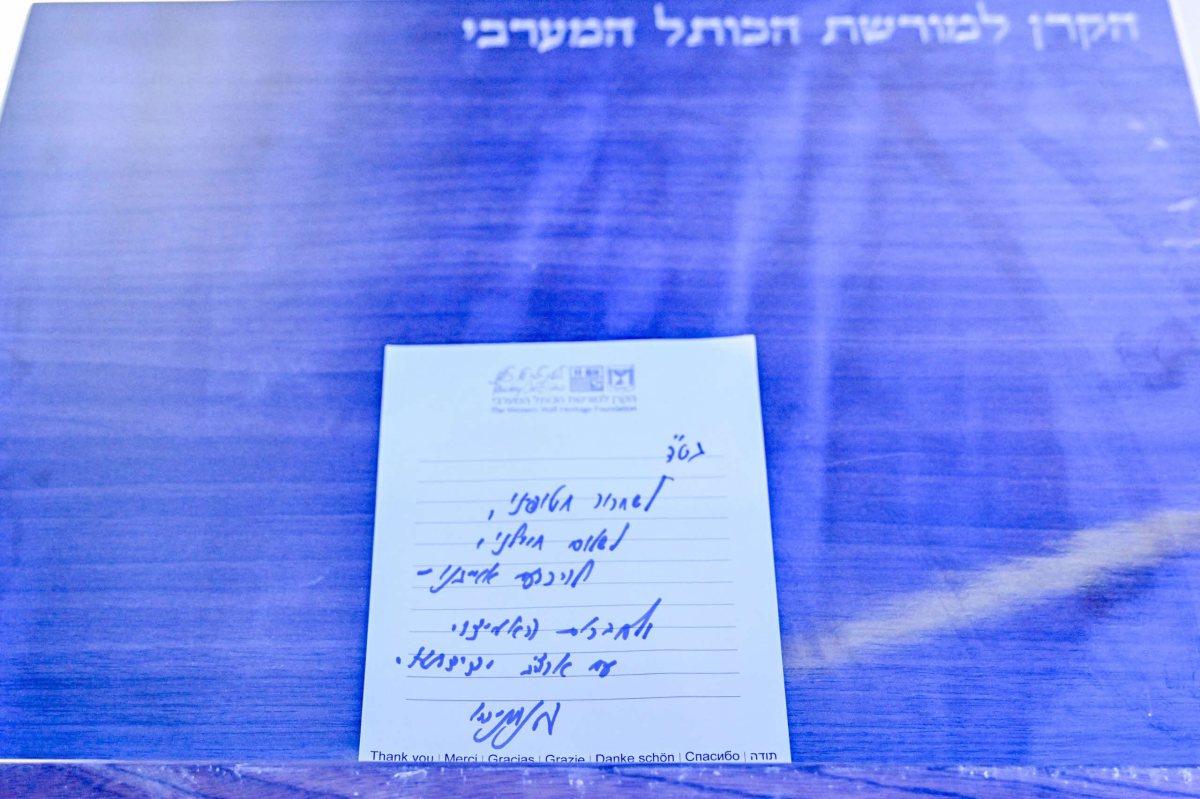 הקרן למורשת הכותל המערבי
הקרן למורשת הכותל המערבי
The Western Wall Heritage Foundation
בס"ד
לשחרור חטופינו,
לשלום חיילינו,
אויבינו -
עם ארה"ב
Thank you | Merci | Gracias | Grazie | Danke schön | Спасибо | תודה